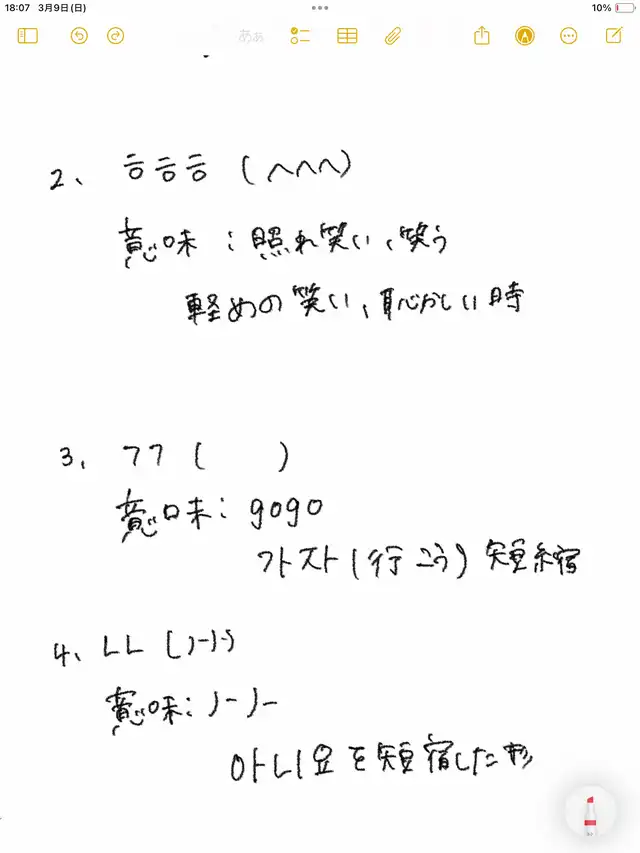 18:07 3月9日(日) 10%
あぁ
2、 ㅎㅎㅎ (へへへ)
意味:照れ笑い、笑う
軽めの笑い、恥かしい時
3、 ㄱㄱ ( )
意味: gogo
가スト(行こう) 短縮
4、 ㄴㄴ (ノーノー)
意味:ノーノー
아니요を短宿した形